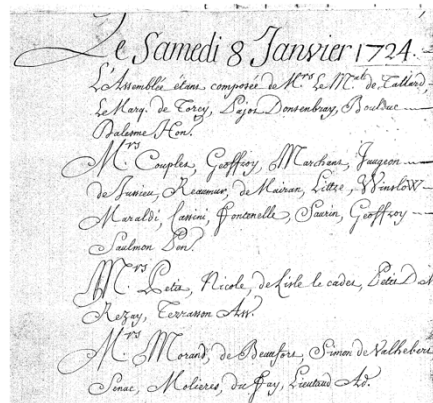 Le Samedi 8 Janvier 1724.
L'Assemblée étant composée de Mrs Le Mal de Tallard,
Le Marq. de Torcy, Pajot Donsenbray, Boulduc
Dalesme Hon.
Mrs Couplet, Geoffroy, Marchant, Jaugeon
de Jussieu, Reaumur, de Mairan, Littre, Winslow
Maraldi, Cassini, Fontenelle, Saurin, Geoffroy
Saulmon Pen.
Mrs Petit, Nicole, de Lisle le cadet, Petit D
Rezay, Terrasson Ass.
Mrs Morand, de Beaufort, Simon de Valhebert
Senac, Molieres, du Fay, Lieutaud Ad.